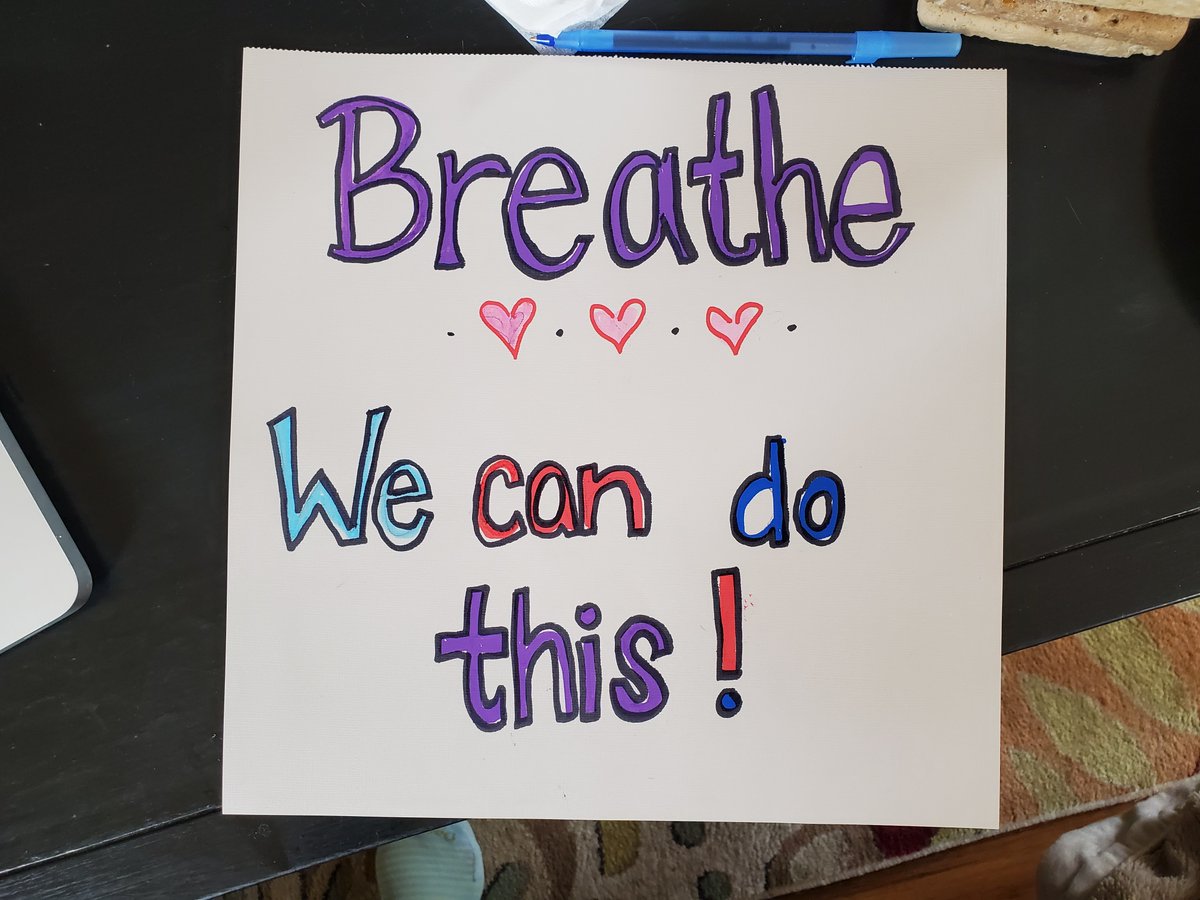 Breathe
We can do
this!